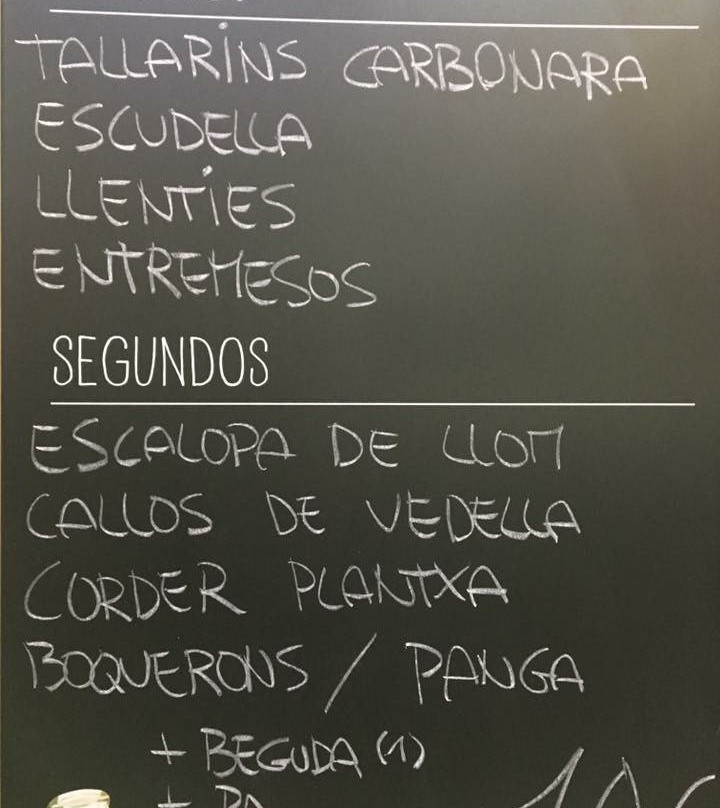 TALLARINS CARBONARA
ESCUDELLA
LLENTIES
ENTREMESOS
SEGUNDOS
ESCALOPA DE LLOM
CALLOS DE VEDELLA
CORDER PLANTXA
BOQUERONS / PANGA
+ BEGUDA (1)
+ PA